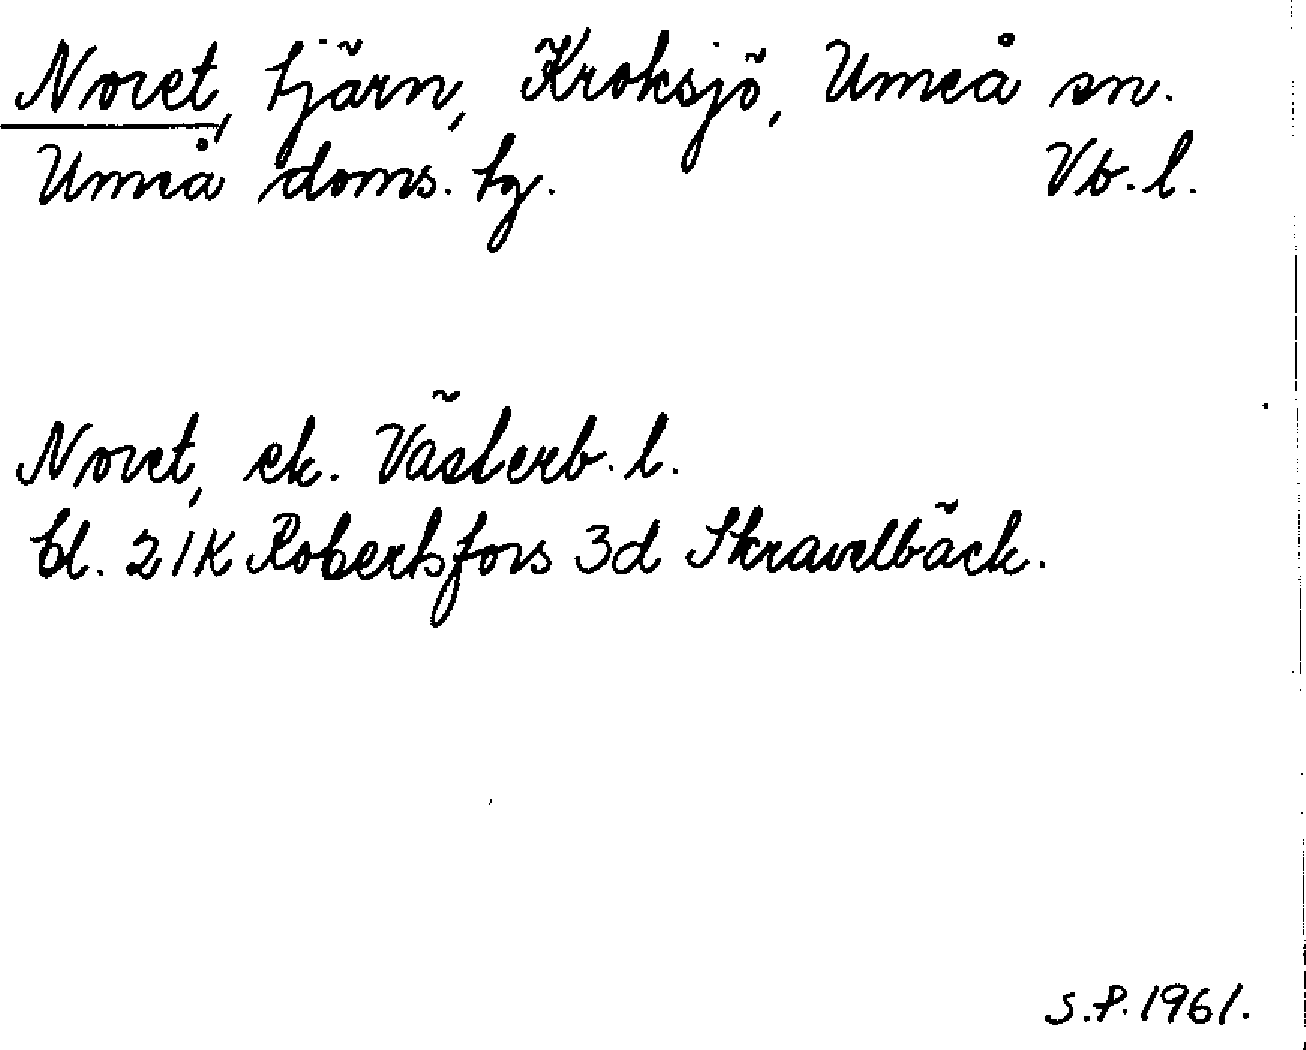 Noret, tjärn, Kroksjö, Umeå sn.
Umeå doms. tg. Vb. l.
Noret, ek. Västerb. l.
bl. 21K Robertsfors 3d Skravelbäck.
S.P. 1961.